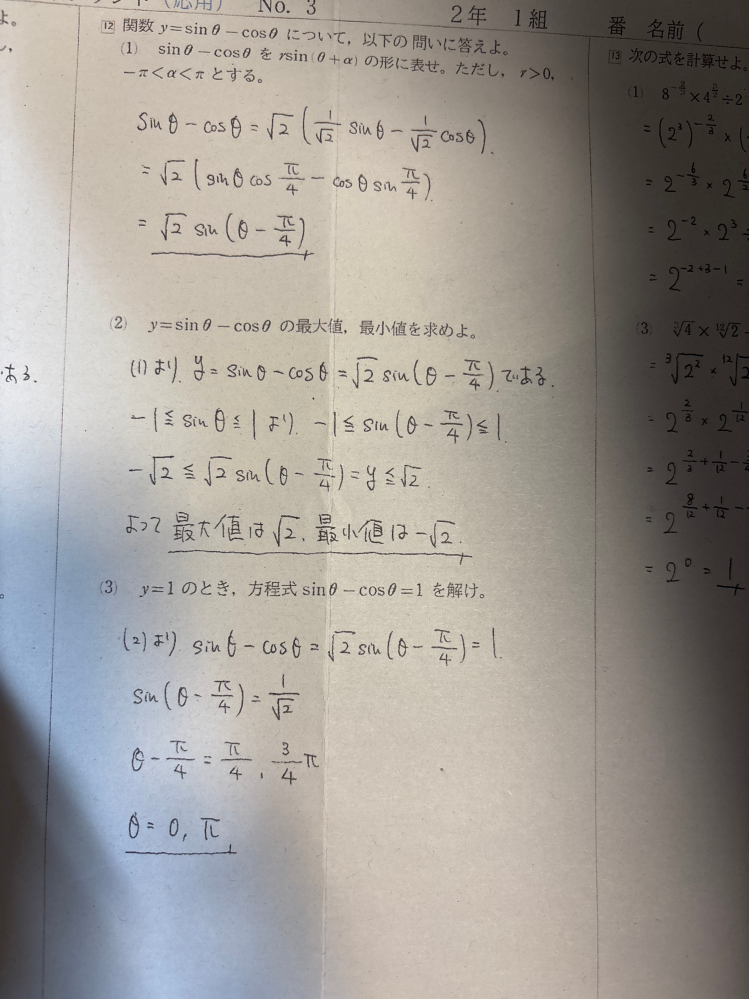 (応用) No. 3 2年 1組 番 名前 (
12 関数 y=sinθ−cosθ について，以下の問いに答えよ。
(1) sinθ−cosθ を rsin(θ+α) の形に表せ。ただし，r>0,
−π<α<π とする。
sinθ − cosθ = √2 (1/√2 sinθ − 1/√2 cosθ).
= √2 (sinθ cos π/4 − cosθ sin π/4).
= √2 sin(θ − π/4)
(2) y=sinθ−cosθ の最大値，最小値を求めよ。
(1)より. y = sinθ − cosθ = √2 sin(θ − π/4) である.
−1 ≦ sinθ ≦ 1 より. −1 ≦ sin(θ − π/4) ≦ 1.
−√2 ≦ √2 sin(θ − π/4) = y ≦ √2.
よって 最大値は √2, 最小値は −√2.
(3) y=1 のとき，方程式 sinθ−cosθ=1 を解け。
(2)より sinθ − cosθ = √2 sin(θ − π/4) = 1.
sin(θ − π/4) = 1/√2
θ − π/4 = π/4 , 3/4 π
θ = 0, π
よ。
ある.
。
13 次の式を計算せよ。
(1) 8^{-2/3} × 4^{3/2} ÷ 2
= (2^3)^{-2/3} × (
= 2^{-6/3} × 2^{6/2}
= 2^{-2} × 2^3 ÷
= 2^{-2+3-1} =
(3) ∛4 × ¹²√2 −
= ∛2² × ¹²√2
= 2^{2/3} × 2^{1/12}
= 2^{2/3 + 1/12 −
= 2^{8/12 + 1/12 −
= 2^0 = 1